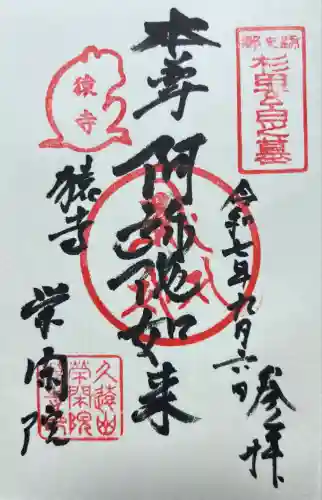 杉田玄白之墓
令和七年九月六日
参拝
本尊 阿弥陀如来
猿寺
猿寺
栄閑院
久遠山
榮閑院